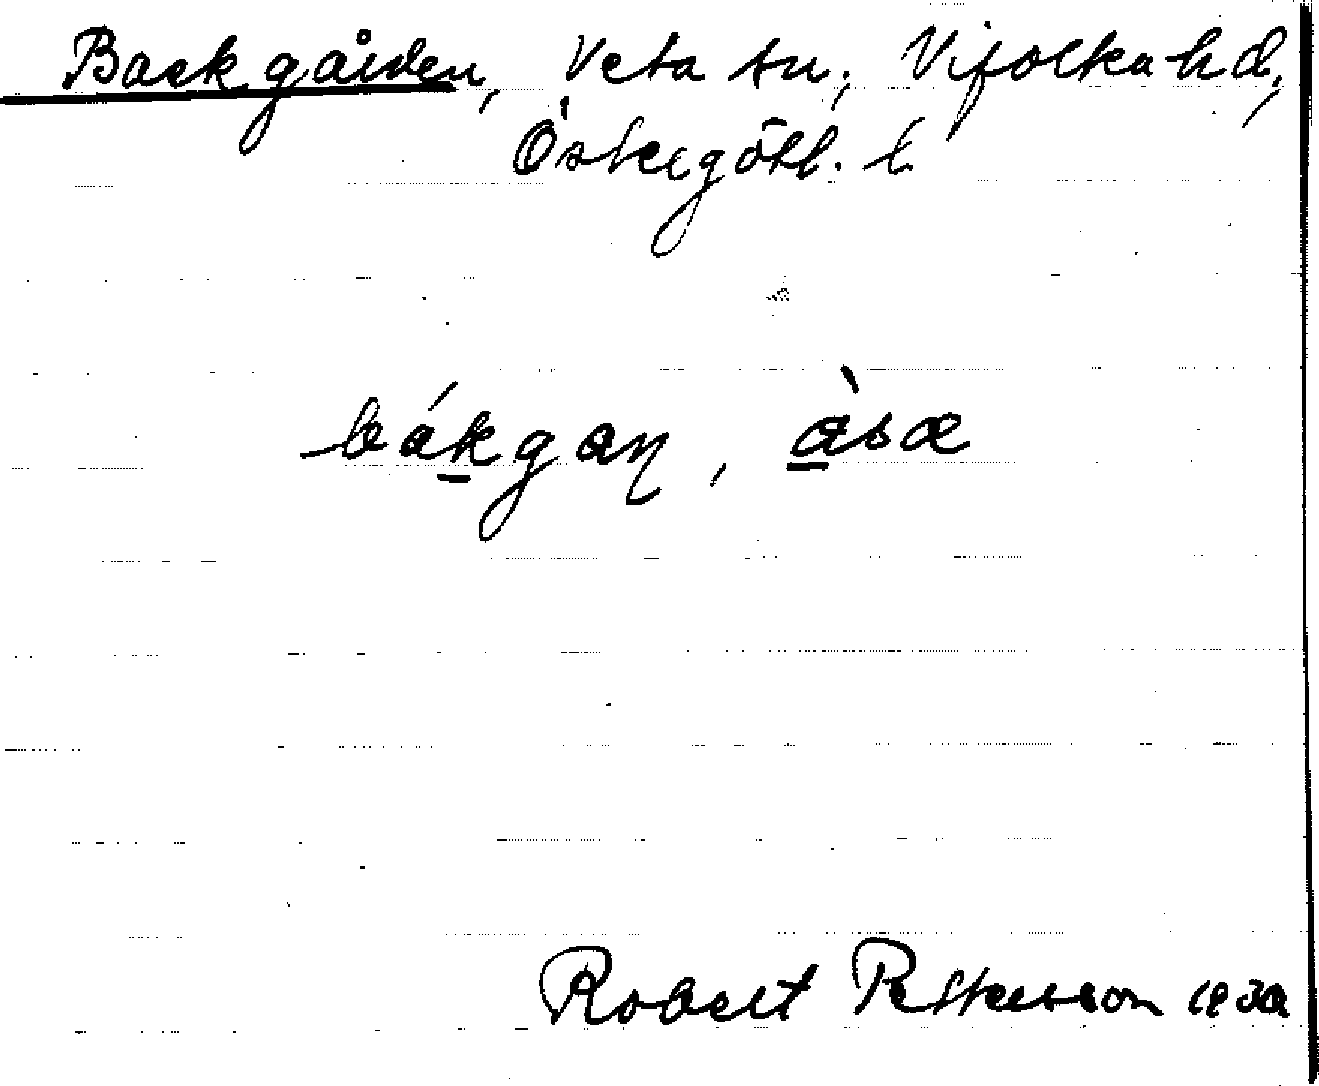 Backgården, Veta sn, Vifolka hd,
Östergötl. l
bákgaɳ, àsa
Robert Pettersson